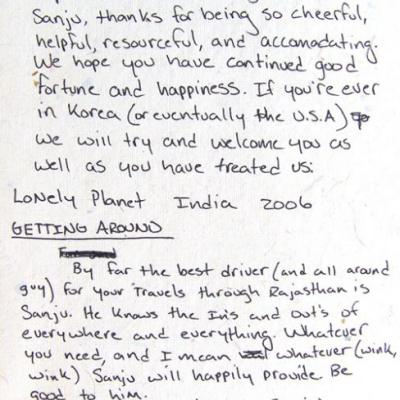 Sanju, thanks for being so cheerful,
helpful, resourceful, and accomadating.
We hope you have continued good
fortune and happiness. If you're ever
in Korea (or eventually the U.S.A)
we will try and welcome you as
well as you have treated us:
Lonely Planet India 2006
GETTING AROUND
By far the best driver (and all around
guy) for your travels through Rajasthan is
Sanju. He knows the Ins and out's of
everywhere and everything. Whatever
you need, and I mean whatever (wink,
wink) Sanju will happily provide. Be
good to him.